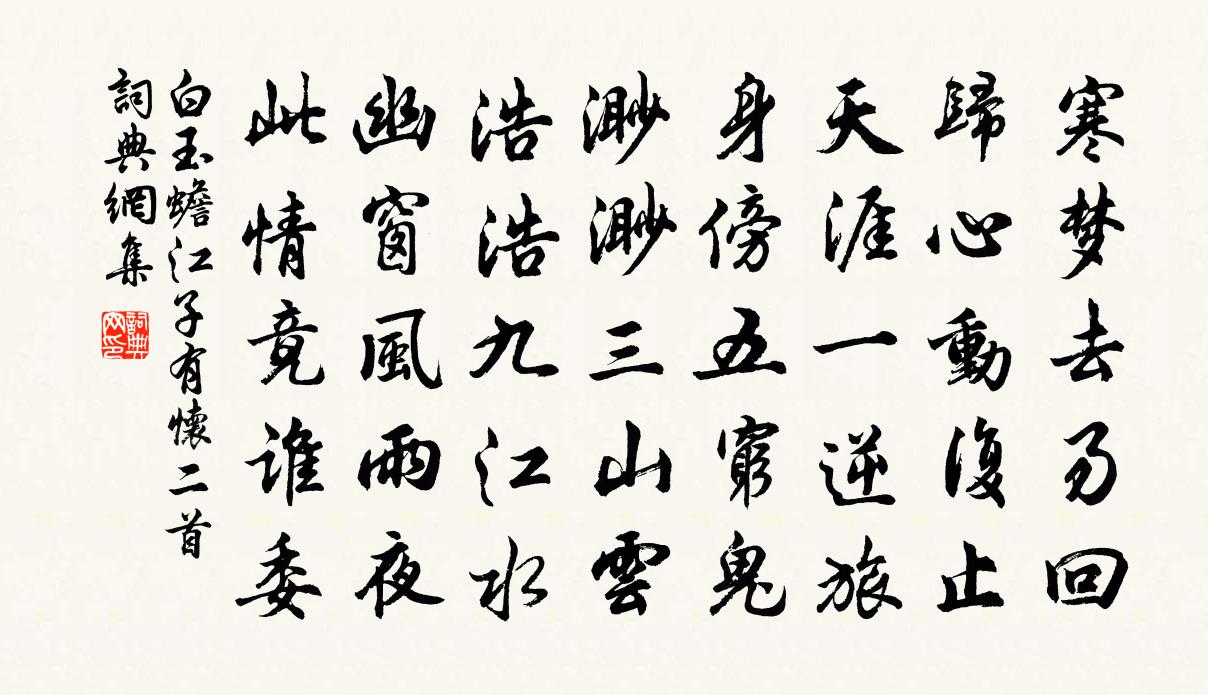 寒梦去易回
歸心動復止
天涯一逆旅
身傍五窮鬼
渺渺三山雲
浩浩九江水
幽窗風雨夜
此情竟誰委
白玉蟾江子有懷二首
詞典網集
詞典
网印